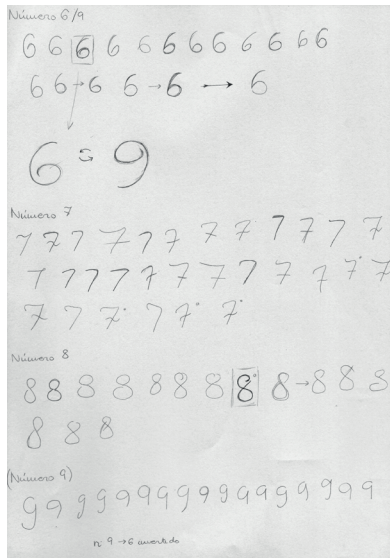 Número 6/9
6 6 6 6 6 6 6 6 6 6 6 6
6 6 → 6 6 → 6 ⟷ 6
6 S 9
Número 7
7 7 7 7 7 7 7 7 7 7 7 7
7 7 7 7 7 7 7 7 7 7 7 7
7 7 7 7 7 7
Número 8
8 8 8 8 8 8 8 8 8 → 8 8 8
8 8 8
(Número 9)
9 9 9 9 9 9 9 9 9 9 9 9 9 9 9 9 9 9
n: 9 → 6 invertido